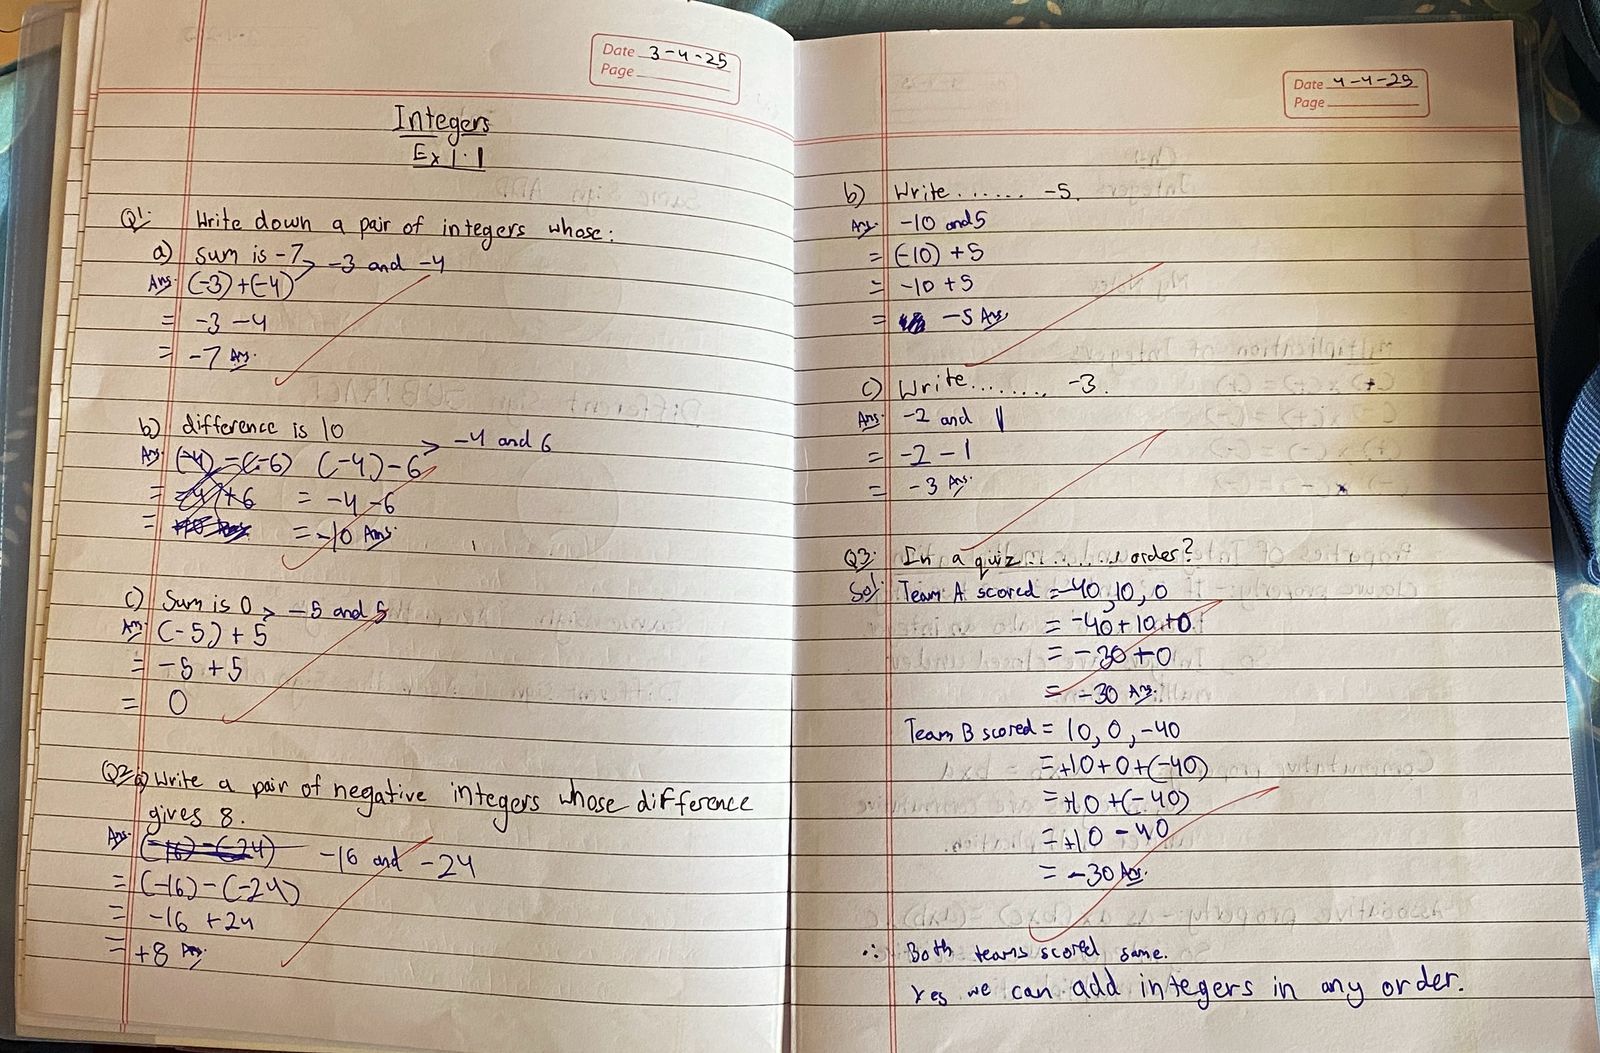 Date 3-4-25
Page
Integers
Ex 1.1
Q1. Write down a pair of integers whose:
a) Sum is -7 > -3 and -4
Ans. (-3)+(-4)
= -3 -4
= -7 Ans.
b) difference is 10 > -4 and 6
Ans. (-4) - (-6) (-4)-6
= -4 +6 = -4 -6
= = -10 Ans.
c) Sum is 0 > -5 and 5
Ans. (-5) + 5
= -5 +5
= 0
Q2. a) Write a pair of negative integers whose difference
gives 8.
Ans. (-16) - (-24) -16 and -24
= (-16) - (-24)
= -16 +24
= +8 Ans.
Date 4-4-25
Page
b) Write ...... -5.
Ans. -10 and 5
= (-10) +5
= -10 +5
= -5 Ans.
c) Write........ -3.
Ans. -2 and 1
= -2 - 1
= -3 Ans.
Q3. In a quiz ........ order?
Sol. Team A scored = -40, 10, 0
= -40 + 10 + 0
= -30 + 0
= -30 Ans.
Team B scored = 10, 0, -40
= +10+0+(-40)
= +10 +(-40)
= +10 - 40
= -30 Ans.
∴ Both teams scored same.
Yes we can add integers in any order.